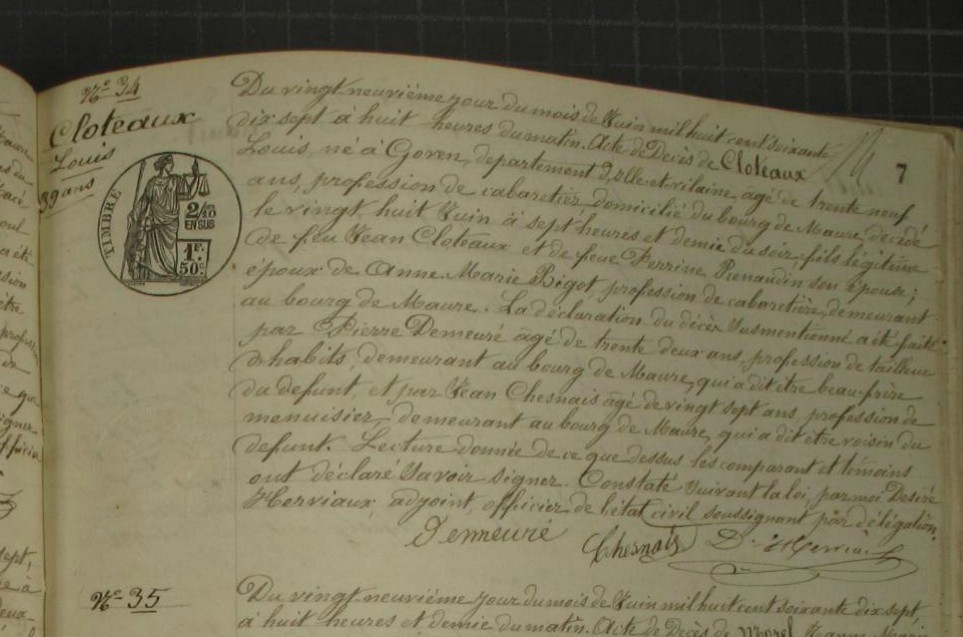 Nº 34
Cloteaux
Louis
39 ans
TIMBRE
2/10
EN SUS
1F.
50c
7
Du vingt-neuvième jour du mois de Juin mil huit-cent soixante
dix sept à huit heures du matin. Acte de Décès de Cloteaux
Louis, né à Goven, département d'Ille-et-vilaine, âgé de trente neuf
ans, profession de cabaretier domicilié du bourg de Maure, décédé
le vingt huit Juin à sept heures et demie du soir, fils légitime
de feu Jean Cloteaux et de feue Perrine Renaudin son épouse;
époux de Anne Marie Bigot, profession de cabaretière, demeurant
au bourg de Maure. La déclaration du décès susmentionné a été faite
par Pierre Demeuré âgé de trente deux ans, profession de tailleur
d'habits, demeurant au bourg de Maure, qui a dit être beau-frère
du defunt, et par Jean Chesnais âgé de vingt sept ans, profession de
menuisier, demeurant au bourg de Maure, qui a dit être voisin du
defunt. Lecture donnée de ce que dessus les comparant et témoins
ont déclaré savoir signer. Constaté suivant la loi, par moi Desiré
Herviaux, adjoint, officier de l'état civil soussignant par délégation.
Demeuré Chesnais
Nº 35
Du vingt-neuvième jour du mois de Juin mil huit cent soixante dix sept,
à huit heures et demie du matin. Acte de Décès de